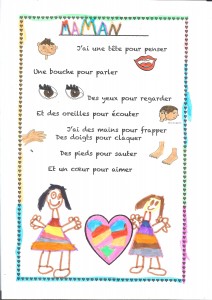 MAMAN
J'ai une tête pour penser
Une bouche pour parler
Des yeux pour regarder
Et des oreilles pour écouter
J'ai des mains pour frapper
Des doigts pour claquer
Des pieds pour sauter
Et un cœur pour aimer